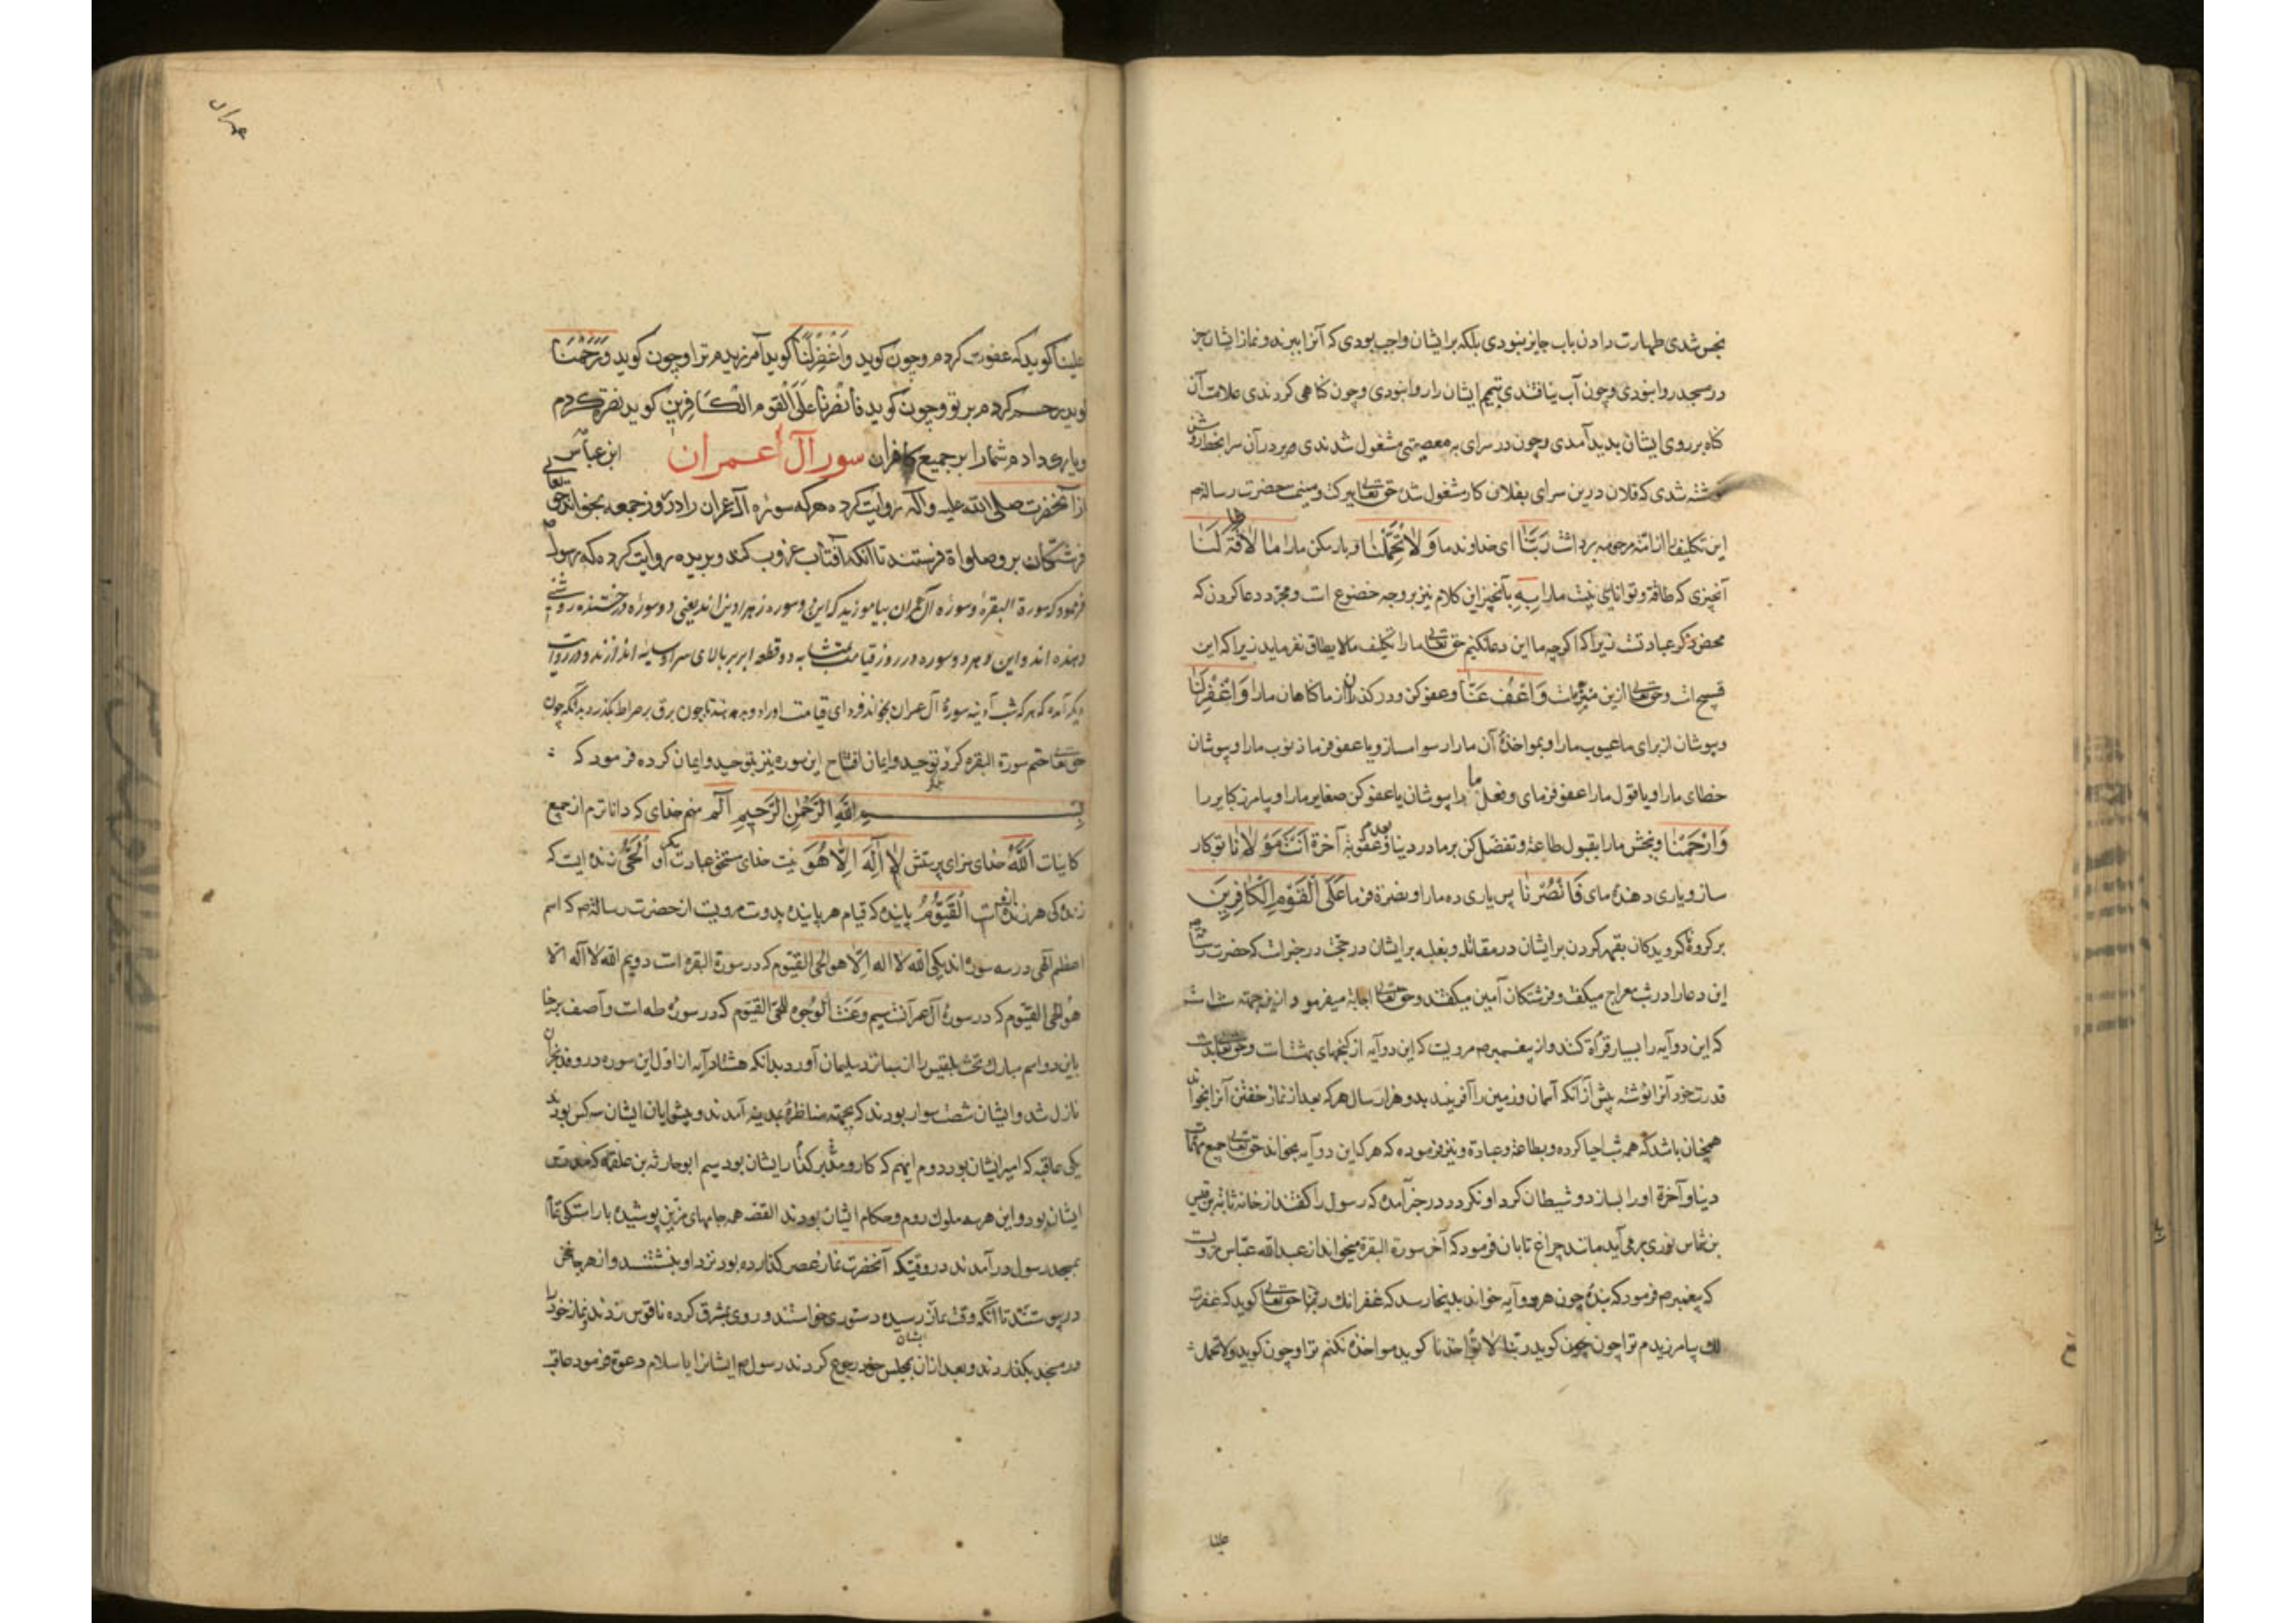 نجس شدی طهارت دادن باب جایز نبودی بلکه بر ایشان واجب بودی که آنرا ببرند و نماز ایشان جز
در مسجد روا نبودی و چون آب نیافتندی تیمم ایشان را روا نبودی و چون کناهی کردندی علامت آن
کناه بر روی ایشان بدید آمدی و چون در سرای به معصیتی مشغول شدندی بر در آن سرا بخط روشن
نوشته شدی که فلان درین سرای بفلان کار مشغول شده حق تعالی ببرکت و میمنت حضرت رسالة م
این تکلیف را از امّت مرحومه برداشت رَبَّنَا ای خداوند ما وَلَا تُحَمِّلْنَا و بار مکن ما را مَا لَا طَاقَةَ لَنَا
آنچیزی که طاقة و توانایی نیست ما را بِهِ بآنچیز این کلام نیز بر وجه خضوع است و مجرّد دعا کردن که
محض ذکر عبادتست زیرا که اکرچه ما این دعا نکنیم حق تعالی ما را تکلیف مالایطاق نفرماید زیرا که این
قبیح است و حق تعالی ازین منزه است وَاعْفُ عَنَّا و عفو کن و در کذران از ما کناهان ما را وَاغْفِرْ لَنَا
و بپوشان از برای ما عیوب ما را و بمواخذهٔ آن ما را رسوا مساز و یا عفو فرما ذنوب ما را و بپوشان
خطای ما را و یا قول ما را عفو فرمای و فعل ما را بپوشان یا عفو کن صغایر ما را و بیامرز کبایر را
وَارْحَمْنَا و ببخش ما را بقبول طاعة و تفضل کن بر ما در دنیا و بعدم عقوبة آخرة اَنْتَ مَوْلَانَا تو کار
ساز و یاری دهندهٔ مای فَانْصُرْنَا پس یاری ده ما را و نصرة فرما عَلَى الْقَوْمِ الْكَافِرِينَ
بر کروه ناکرویدکان بقهر کردن بر ایشان در مقاتله و بغلبه بر ایشان در حجت در خبر است که حضرت رسالت
این دعا را در شب معراج میکفت و فرشتکان آمین میکفتند و حق تعالی اجابة میفرمود ازین جهت
که این دو آیه را بسیار قرأة کنند و از پیغمبر م مرویست که این دو آیه از کنجهای بهشت است و حق تعالی بید
قدرت خود آنرا نوشته پیش از آنکه آسمان و زمین را آفریند بدو هزار سال هر که بعد از نماز خفتن آنرا بخواند
همچنان باشد که همه شب احیا کرده و بطاعة و عبادة و نیز فرموده که هر که این دو آیه بخواند حق تعالی جمیع مهمات
دنیا و آخرة او را بسازد و شیطان کرد او نکردد در خبر آمده که رسول را کفتند از خانه ثابت بن قیس
بن شماس نوری بر می آید مانند چراغ تابان فرمود که آخر سورة البقرة میخواند از عبدالله عباس مرویست
که پیغمبر م فرمود که بندهٔ چون هر دو آیه خواند بدینجا رسد که غفرانك ربنا حق تعالی کوید که غفرت
لك بیامرزیدم ترا چون کوید ربنا لا تؤاخذنا کوید مواخذه نکنم ترا و چون کوید ولا تحمل
علینا
عمران
علینا کوید که عفوت کردم و چون کوید وَاغْفِرْ لَنَا کوید آمرزیدم ترا و چون کوید وَارْحَمْنَا
کوید رحم کردم بر تو و چون کوید فَانْصُرْنَا عَلَى الْقَوْمِ الْكَافِرِينَ کوید نصرة کردم
و یاری دادم شما را بر جمیع کافران سورة آل عمران ابن عباس
از آنحضرت صلی الله علیه وآله روایت کرده هر که سوره آل عمران را در روز جمعه بخواند حق تعالی
فرشتکان برو صلواة فرستند تا آنکه آفتاب غروب کند و بریده روایت کرده که رسول م
فرمود که سورة البقرة و سورهٔ آل عمران بیاموزید که این دو سوره زهراوین اند یعنی دو سوره درخشنده روشنی
دهنده اند و این هر دو سوره در روز قیامت بمثابه دو قطعه ابر بر بالای سر او سایه اندازند و در روایت
دیکر آمده که هر که شب آدینه سورهٔ آل عمران بخواند فردای قیامت او را دو پر بدهند تا چون برق بر صراط بکذرد بدانکه چون
حق تعالی ختم سورة البقره کرد بتوحید و ایمان افتتاح این سوره نیز بتوحید و ایمان کرده فرمود که
بِسْمِ اللّٰهِ الرَّحْمٰنِ الرَّحِيمِ الم منم خدای که داناترم از جمیع
کاینات اَللّٰهُ خدای سزای پرستش لَا اِلٰهَ اِلَّا هُوَ نیست خدای مستحق عبادت مکر او اَلْحَيُّ زنده ایست که
زندکی هر زنده ازوست اَلْقَيُّومُ پاینده که قیام هر پاینده بدوست مرویست از حضرت رسالة م که اسم
اعظم الهی در سه سوره اند یکی الله لا اله الّا هو الحی القیّوم که در سورة البقره است دویم الله لا اله الّا
هو الحی القیّوم که در سورهٔ آل عمرانست سیم وعنت الوجوه للحیّ القیّوم که در سورهٔ طه است و آصف برخیا
باین دو اسم مبارك تخت بلقیس را از سبا نزد سلیمان آورد بدانکه هشتاد آیه از اول این سوره در وفد نجران
نازل شد و ایشان شصت سوار بودند که بجهته مناظره بمدینه آمدند و پیشوایان ایشان سه کس بودند
یکی عاقبه که امیر ایشان بود دوم ایهم که کار و مدبر کنار ایشان بود سیم ابوحارثه بن علقمه که مدرس
ایشان بود و این هر سه ملوك روم و حکام ایشان بودند القصه همه جامهای مزین پوشیده باراستکی تمام
بمسجد رسول در آمدند در وقتیکه آنحضرت نماز عصر کذارده بود نزد او بنشستند و از هر جا سخن
در پیوستند تا آنکه وقت نماز رسیده دستوری خواستند و روی بمشرق کرده ناقوس زدند و نماز خود را
در مسجد بکذاردند و بعد از آن بمجلس ایشان رجوع کردند رسول م ایشانرا باسلام دعوة فرمود عاقبه